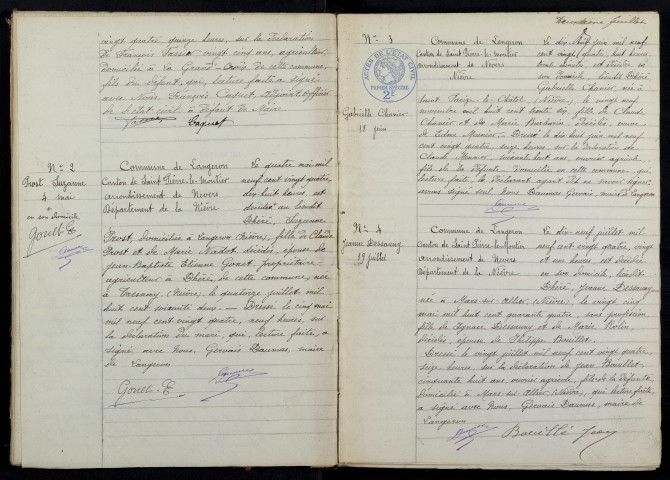 vingt quatre, quinze heures, sur la déclaration
de François Tassin vingt cinq ans, agriculteur
domicilié à la Grand-Croix de cette commune,
fils du défunt qui, lecture faite a signé
avec Nous, François Paquet Adjoint Officier
de l'état civil à défaut du Maire
Paquet
N° 2
Prost Suzanne
4 mai
en son domicile
Goult E
Commune de Langeron
Canton de Saint Pierre-le-Moutier
arrondissement de Nevers
Département de la Nièvre
Le quatre mai mil
neuf cent vingt quatre,
dix huit heures, est
décédée au lieudit
Dhéré, Suzanne
Prost, domiciliée à Langeron (Nièvre), fille de Claude
Prost et de Marie Nadot, décédés, épouse de
Jean-Baptiste Etienne propriétaire
agriculteur à Dhéré, de cette commune, née
à Tresnay (Nièvre) le quatorze juillet mil
huit cent soixante deux. — Dressé le cinq mai
mil neuf cent vingt quatre, neuf heures, sur
la déclaration du mari, qui, lecture faite, a
signé avec Nous, Gervais Daumas, maire
de Langeron
Goult E
N° 3
ACTES DE L'ÉTAT CIVIL
PAPIER SPÉCIAL
2F
Gabrielle Chanier
18 juin
Commune de Langeron
Canton de Saint Pierre-le-Moutier
arrondissement de Nevers
Nièvre
Le dix huit juin mil neuf
cent
son domicile, lieudit Dhéré
Gabrielle Chanier, née à
Saint Parize le Châtel (Nièvre), le vingt neuf
novembre mil huit cent trente six fille de Claude
Chanier et de Marie décédés, veuve
de Dressé le dix huit juin mil
neuf cent vingt quatre, seize heures, sur la déclaration de
Claude soixante huit ans, ouvrier agricole,
fils de la défunte, domicilié en cette commune, qui
lecture faite, le déclarant ayant dit ne savoir signer,
avons signé seul Nous Daumas Gervais, maire de Langeron
N° 4
Jeanne Dessauny
19 juillet
Commune de Langeron
Canton de Saint-Pierre-le-Moutier
arrondissement de Nevers
Département de la Nièvre
Le dix-neuf juillet mil
neuf cent vingt quatre, vingt
et une heures est décédée
en son domicile, lieudit
Dhéré, Jeanne Dessauny
née à Mars-sur-Allier, (Nièvre), le vingt cinq
mai mil huit cent quarante quatre, sans profession,
fille de Dessauny et de Marie
décédés, épouse de Philippe Bouillet.
Dressé le vingt juillet mil neuf cent vingt quatre
seize heures, sur la déclaration de Jean Bouillet
cinquante huit ans, ouvrier agricole, fils de la défunte
domicilié à Mars-sur-Allier, (Nièvre), qui lecture faite,
a signé avec Nous, Gervais Daumas, maire de
Langeron
Bouillé Jean